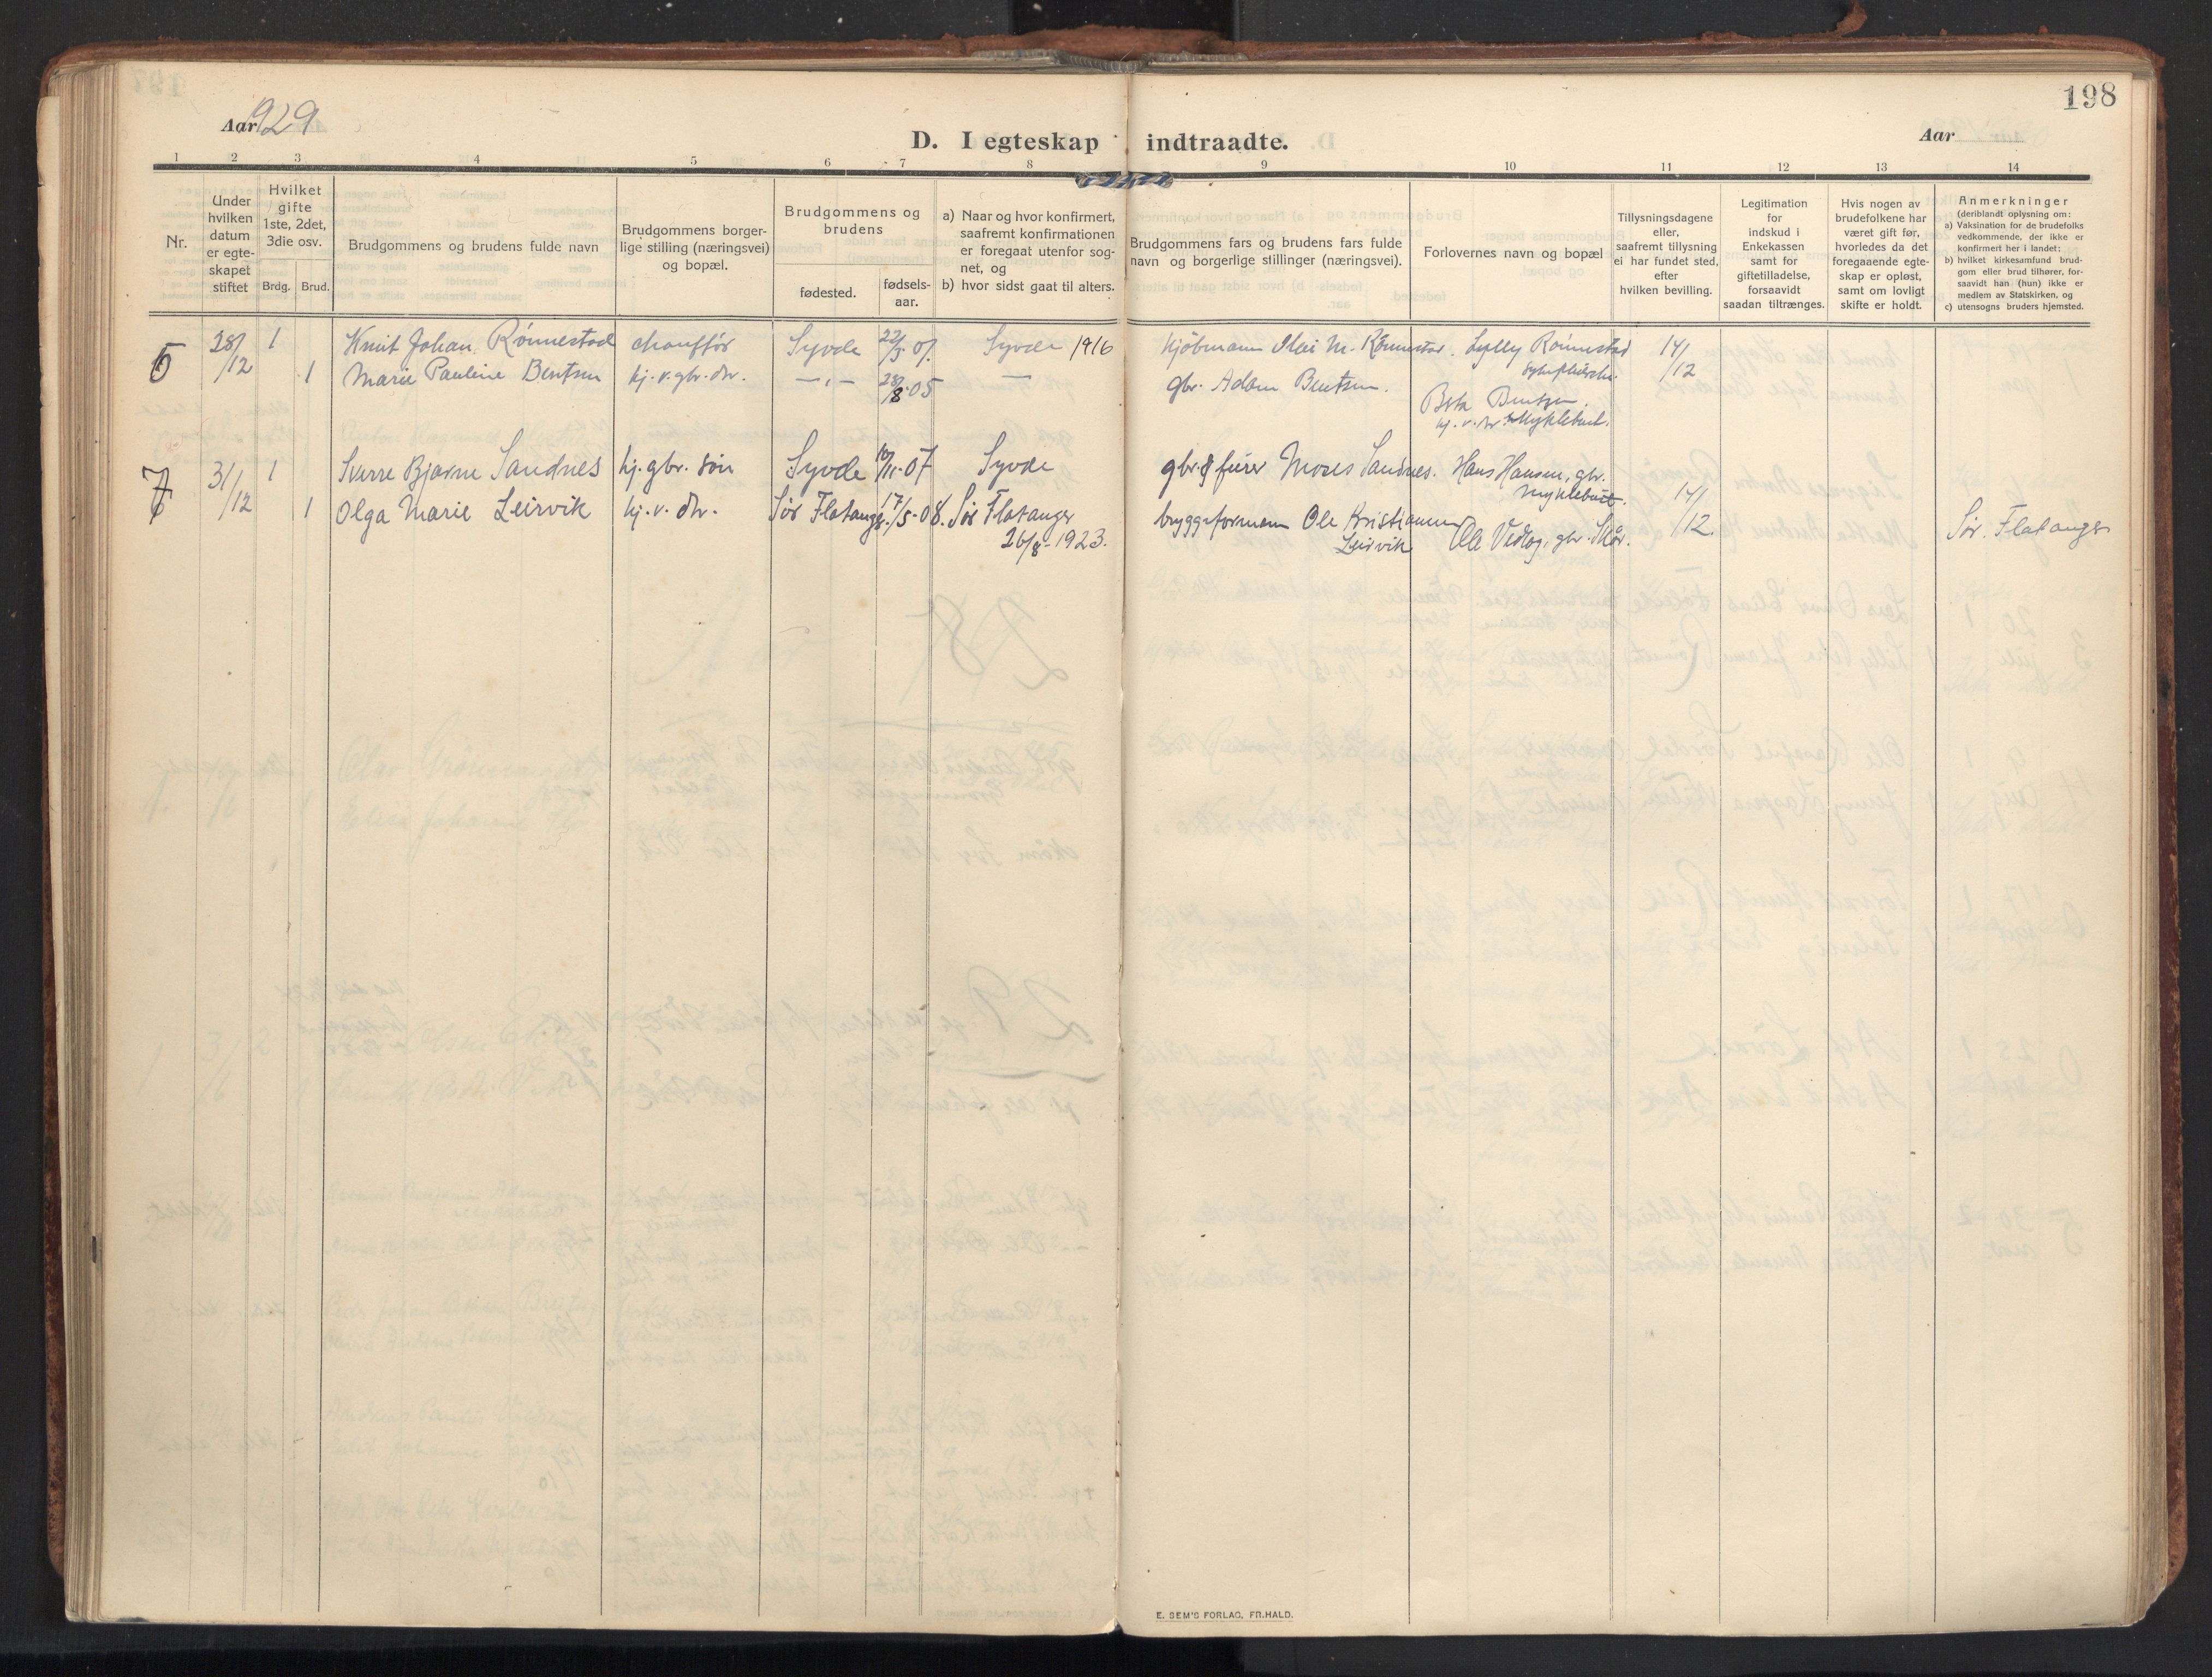 198
Aar 1929
D. I egteskap indtraadte.
Aar
1 2 3 4 5 6 7 8 9 10 11 12 13 14
Nr.
Under
hvilken
datum
er egte-
skapet
stiftet
Hvilket
gifte
1ste, 2det,
3die osv.
Brdg. Brud.
Brudgommens og brudens fulde navn
Brudgommens borger-
lige stilling (næringsvei)
og bopæl.
Brudgommens og
brudens
fødested.
fødsels-
aar.
a) Naar og hvor konfirmert,
saafremt konfirmationen
er foregaat utenfor sog-
net, og
b) hvor sidst gaat til alters.
Brudgommens fars og brudens fars fulde
navn og borgerlige stillinger (næringsvei).
Forlovernes navn og bopæl
Tillysningsdagene
eller,
saafremt tillysning
ei har fundet sted,
efter
hvilken bevilling.
Legitimation
for
indskud i
Enkekassen
samt for
giftetilladelse,
forsaavidt
saadan tiltrænges.
Hvis nogen av
brudefolkene har
været gift før,
hvorledes da det
foregaaende egte-
skap er opløst,
samt om lovligt
skifte er holdt.
Anmerkninger
(deriblandt oplysning om:
a) Vaksination for de brudefolks
vedkommende, der ikke er
konfirmert her i landet;
b) hvilket kirkesamfund brud-
gom eller brud tilhører, for-
saavidt han (hun) ikke er
medlem av Statskirken, og
c) utensogns bruders hjemsted.
28/12 1 Knut Johan Rönnestad chauffør Syvde 22/3. 07. Syvde 1916 Kjöbmann M. Rönnestad. Lylly Rönnestad 14/12
1 Marie Pauline Bentsen hj. v. gbr. dtr. —„— 28/8 05 — gbr. Adam Bentsen.
Bentsen.
hj. v. dtr. Myklebust.
7 31/12 1 Sverre Bjarne Sandnes hj. gbr. søn Syvde 10/11. 07 Syvde gbr. & feirer Moses Sandnes. Hans Hansen, gbr.
Myklebust.
1 Olga Marie Leirvik hj. v. dtr. Sör Flatanger. 17/5 - 08. Sör Flatanger bryggeformann Ole Kristiansen Ole Vedlog, gbr. Skår. 14/12. Sör. Flatanger
26/8 - 1923. Leirvik
E. SEM'S FORLAG, FR.HALD.